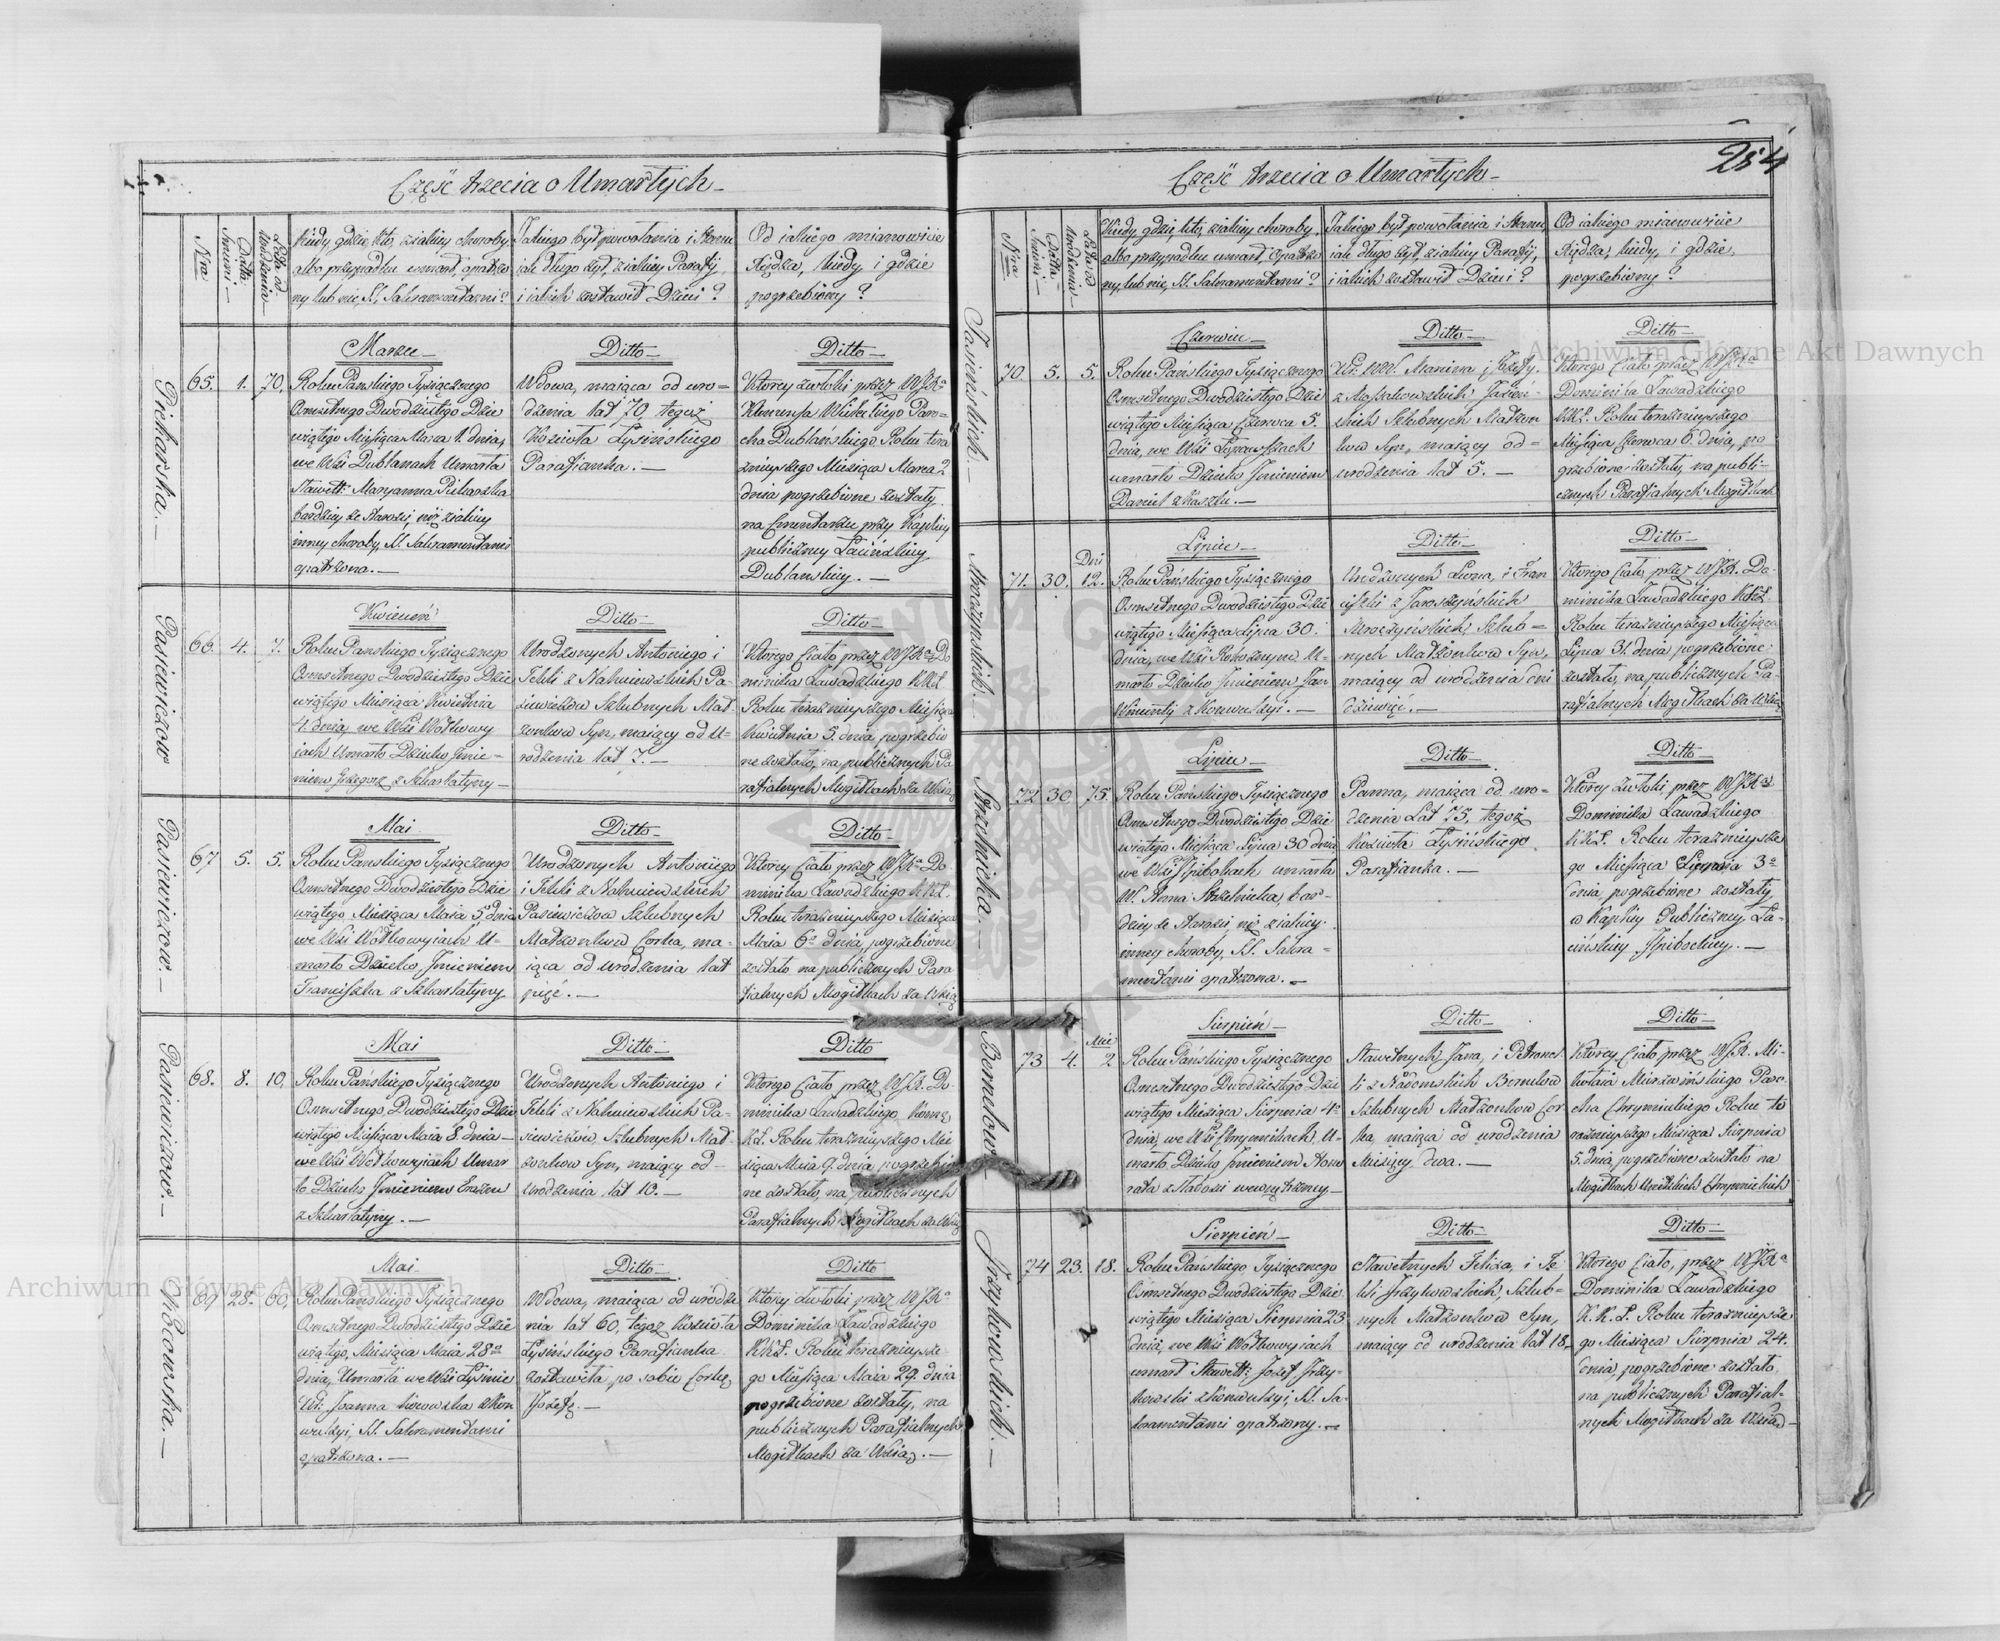 Część trzecia o Umarłych
Nra
Data Śmierci
Lata od Urodzenia
Kiedy, gdzie, kto, z jakiey choroby
albo przypadku umarł, opatrzo
ny lub nie, SS. Sakramentami?
Jakiego był powołania i stanu
jak długo żył, z jakiey Parafij,
i jakich zostawił Dzieci?
Od jakiego mianowicie
Xiędza, kiedy, i gdzie
pogrzebiony?
Piekarska.
65. 1. 70.
Marzec
Roku Pańskiego Tysiącznego
Osmsetnego Dwodziestego Dzie
wiątego Miesiąca Marca 1. dnia,
we Wsi Dublanach Umarła
Sławett: Maryanna Piekarska
bardziey ze starości, niż z jakiey
inney choroby, SS. Sakramentami
opatrzona.
Ditto
Wdowa, maiąca od uro=
dzenia lat 70, tegoż
Kościoła Łysińskiego
Parafianka.
Ditto
Którey zwłoki przez WJXa
Klemensa Wiśkiego Paro=
cha Dublańskiego, Roku tera
znieyszego Miesiąca Marca 2
dnia pogrzebione zostały
na Cmentarzu przy Kaplicy
publiczney Łacińskiey
Dublańskiey.
Pasiewiczow
66. 4. 7.
Kwiecień
Roku Pańskiego Tysiącznego
Osmsetnego Dwodziestego Dzie
wiątego Miesiąca Kwietnia
4. dnia, we Wsi Wołkowy
iach Umarło Dziecko Imie=
niem Grzegorz z Szkarlatyny
Ditto
Urodzonych Antoniego i
Tekli z Nahuiewskich Pa=
siewiczów Szlubnych Mał
żonkow Syn, maiący od U=
rodzenia lat 7.
Ditto
Którego Ciało przez WJXa Do
minika Zawadzkiego KKŁ.
Roku teraznieyszego Miesiąca
Kwietnia 5. dnia, pogrzebio
ne zostało, na publicznych Pa
rafialnych Mogiłkach za Wsią
Pasiewiczow.
67 5. 5.
Mai
Roku Pańskiego Tysiącznego
Osmsetnego Dwodziestego Dzie
wiątego, Miesiąca Maia 5 dnia
we Wsi Wołkowyiach U=
marło Dziecko, Imieniem
Franciszka z Szkarlatyny
Ditto
Urodzonych Antoniego
i Tekli z Nahuiewskich
Pasiewiczow Szlubnych
Małżonkow Corka, ma=
iąca od urodzenia lat
pięć.
Ditto
Którey Ciało przez WJXa Do
minika Zawadzkiego KKŁ.
Roku teraznieyszego Miesiąca
Maia 6. dnia, pogrzebione
zostało na publicznych Para
fialnych Mogiłkach za Wsią
Pasiewiczow.
68. 8. 10.
Mai
Roku Pańskiego Tysiącznego
Osmsetnego, Dwodziestego Dzie
wiątego Miesiąca Maia 8. dnia
we Wsi Wołkowyiach Umar
ło Dziecko, Imieniem Erazm
z Szkarlatyny.
Ditto
Urodzonych Antoniego i
Tekli z Nahuiewskich Pa=
siewiczów, Szlubnych Mał
żonkow Syn, maiący od
urodzenia lat 10.
Ditto
Którego Ciało, przez WJX. Do
minika Zawadzkiego,
KŁ. Roku teraznieyszego Mie
siąca Maia 9. dnia pogrzebio
ne zostało, na publicznych
Parafialnych Mogiłkach za Wsią
69 28. 60.
Mai
Roku Pańskiego Tysiącznego
Osmsetnego Dwodziestego Dzie
wiątego, Miesiąca Maia 28a
dnia, Umarła we Wsi Łysinie
Joanna z Kon
wulsyi, SS. Sakramentami
opatrzona.
Ditto
Wdowa, maiąca od urodze
nia lat 60, tegoż Kościoła
Łysińskiego Parafianka
zostawiła po sobie Corkę,
Jozefę.
Ditto
Którey Zwłoki przez WJXa
Dominika Zawadzkiego
KKŁ. Roku teraznieysze=
go Miesiąca Maia 29. dnia
pogrzebione zostały, na
publicznych Parafialnych
Mogiłkach za Wsią.
254
Część trzecia o Umarłych
Nra
Data Śmierci
Lata od Urodzenia
Kiedy, gdzie, kto, z jakiey choroby,
albo przypadku umarł, opatrzo
ny, lub nie, SS. Sakramentami?
Jakiego był powołania i stanu,
jak długo żył, z jakiey Parafij,
i jakich zostawił Dzieci?
Od jakiego mianowicie
Xiędza, kiedy, i gdzie,
pogrzebiony?
Jasieńskich.
70. 5. 5.
Czerwiec
Roku Pańskiego Tysiącznego
Osmsetnego Dwodziestego Dzie
wiątego Miesiąca Czerwca 5.
dnia, we Wsi Łopuszkach
umarło Dziecko Imieniem
Daniel z Kaszlu.
Ditto
Jozefy,
skich Szlubnych Małżon
kow Syn, maiący od=
urodzenia lat 5.
Ditto
Którego Ciało przez WJXa
Dominika Zawadzkiego
KKŁ. Roku teraznieyszego
Miesiąca Czerwca 6. dnia, po
grzebione zostały, na publi=
cznych Parafialnych Mogiłkach
Mroczyńskich.
71. 30. Dni 12.
Lipiec
Roku Pańskiego Tysiącznego
Osmsetnego Dwodziestego Dzie
wiątego Miesiąca Lipca 30.
dnia, we Wsi U=
marło Dziecko Imieniem Jan
Wincenty z Konwulsyi.
Ditto
Urodzonych i Fran
ciszki z Jaroszyńskich
Mroczyńskich, Szlub=
nych Małżonkow Syn,
maiący od urodzenia dni
dziewięć.
Ditto
Którego Ciało, przez WJX. Do=
minika Zawadzkiego KKŁ.
Roku teraznieyszego Miesiąca
Lipca 31. dnia pogrzebione
zostało, na publicznych Pa=
rafialnych Mogiłkach za Wsią
Strzelnicka.
72 30 75.
Lipiec
Roku Pańskiego Tysiącznego
Osmsetnego Dwodziestego Dzie
wiątego Miesiąca Lipca 30 dnia
we Wsi umarła
W. Anna Strzelnicka bar=
dziey ze starości, niż z jakiey
inney choroby, SS. Sakra=
mentami opatrzona.
Ditto
Panna, maiąca od uro=
dzenia Lat 75, tegoż
Kościoła Łysińskiego
Parafianka.
Ditto
Którey zwłoki przez WJXa
Dominika Zawadzkiego
KKŁ. Roku teraznieysze
go Miesiąca Sierpnia 3a
dnia, pogrzebione zostały
w Kaplicy Publiczney Ła=
cińskiey
73 4. Mie 2
Sierpień
Roku Pańskiego Tysiącznego
Osmsetnego Dwodziestego Dzie
wiątego Miesiąca Sierpnia 4a
dnia, we Wsi U=
marło Dziecko Imieniem Hono
rata z słabości wewnętrzney
Ditto
Sławetnych Jana, i Petronel
li z
Szlubnych Małżonkow Cor
ka, maiąca od urodzenia
Miesięcy dwa.
Ditto
Którey Ciało przez WJX. Mi=
kołaia Paro=
cha Roku te
raznieyszego Miesiąca Sierpnia
5. dnia, pogrzebione zostało na
Mogiłkach
Przybowskich.
74 23. 18.
Sierpień
Roku Pańskiego, Tysiącznego
Osmsetnego Dwodziestego Dzie
wiątego Miesiąca Sierpnia 23
dnia, we Wsi Wołkowyiach
umarł Sławett: Jozef
z Konwulsyi, SS. Sa=
kramentami opatrzony.
Ditto
Sławetnych Felixa, i Te
kli Szlub=
nych Małżonkow Syn,
maiący od urodzenia lat 18.
Ditto
Którego Ciało, przez WJXa
Dominika Zawadzkiego
K.K.Ł. Roku teraznieysze
go Miesiąca Sierpnia 24.
dnia, pogrzebione zostało
na publicznych Parafial=
nych Mogiłkach za Wsią
Archiwum Główne Akt Dawnych
Archiwum Główne Akt Dawnych